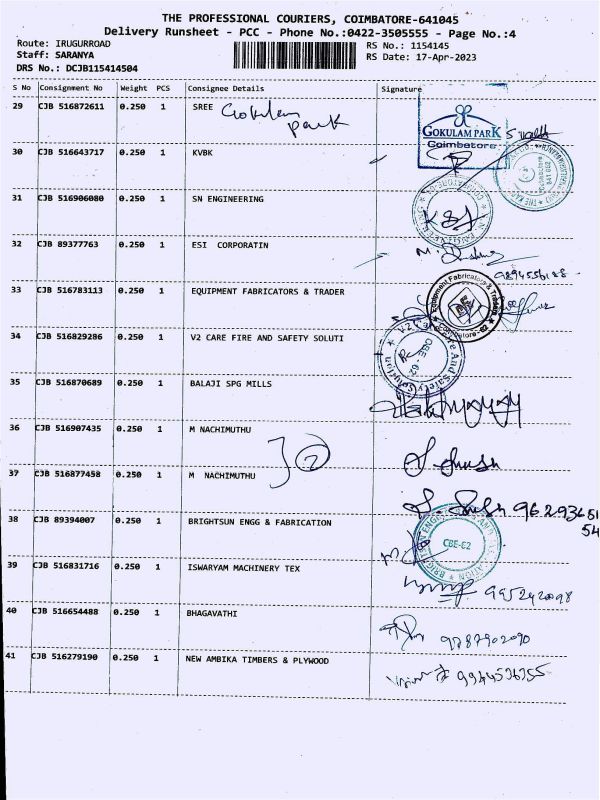 THE PROFESSIONAL COURIERS, COIMBATORE-641045
Delivery Runsheet - PCC - Phone No.:0422-3505555 - Page No.:4
Route: IRUGURROAD
Staff: SARANYA
DRS No.: DCJB115414504
RS No.: 1154145
RS Date: 17-Apr-2023
S No Consignment No Weight PCS Consignee Details Signature
29 CJB 516872611 0.250 1 SREE Gokulam Park
GOKULAM PARK
Coimbatore
30 CJB 516643717 0.250 1 KVBK
31 CJB 516906080 0.250 1 SN ENGINEERING
32 CJB 89377763 0.250 1 ESI CORPORATIN
33 CJB 516783113 0.250 1 EQUIPMENT FABRICATORS & TRADER
Equipment Fabricators & Traders
Coimbatore-62
34 CJB 516829286 0.250 1 V2 CARE FIRE AND SAFETY SOLUTI
CBE-62
35 CJB 516870689 0.250 1 BALAJI SPG MILLS
36 CJB 516907435 0.250 1 M NACHIMUTHU
2
37 CJB 516877458 0.250 1 M NACHIMUTHU
38 CJB 89394007 0.250 1 BRIGHTSUN ENGG & FABRICATION
CBE-62
39 CJB 516831716 0.250 1 ISWARYAM MACHINERY TEX
40 CJB 516654488 0.250 1 BHAGAVATHI
9787902090
41 CJB 516279190 0.250 1 NEW AMBIKA TIMBERS & PLYWOOD
9944536355